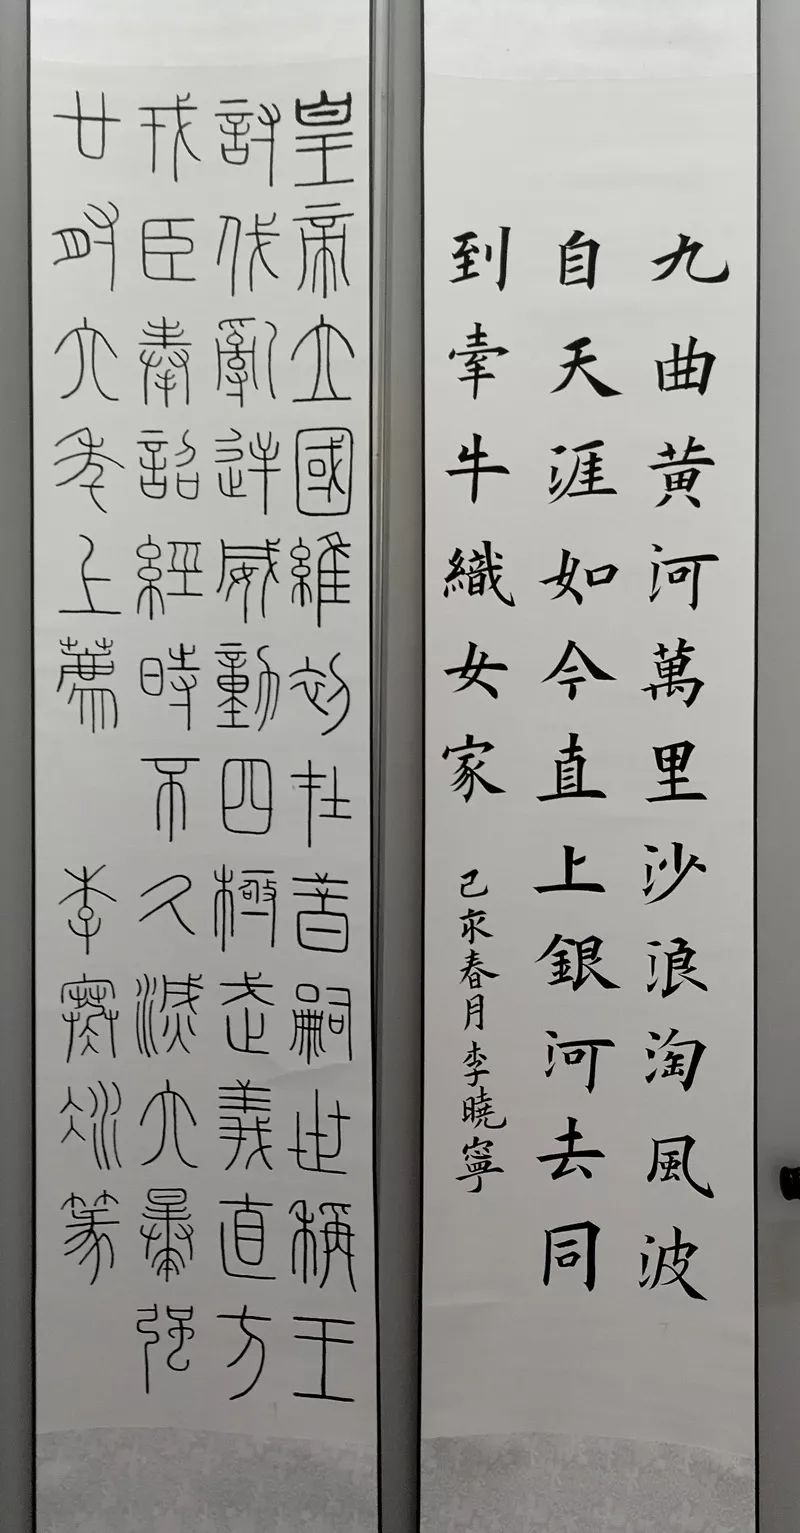 九曲黄河萬里沙浪淘風波
自天涯如今直上銀河去同
到牽牛織女家
己亥春月李曉寧
皇帝立國維初在昔嗣世稱王
討伐亂逆威動四極武義直方
戎臣奉詔經時不久滅六暴强
廿有六年上薦 李篆